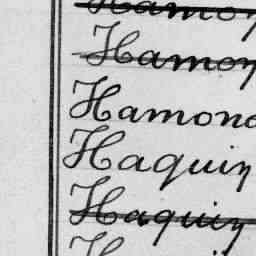 Hamon
Hamon
Hamond
Haquin
Haquin